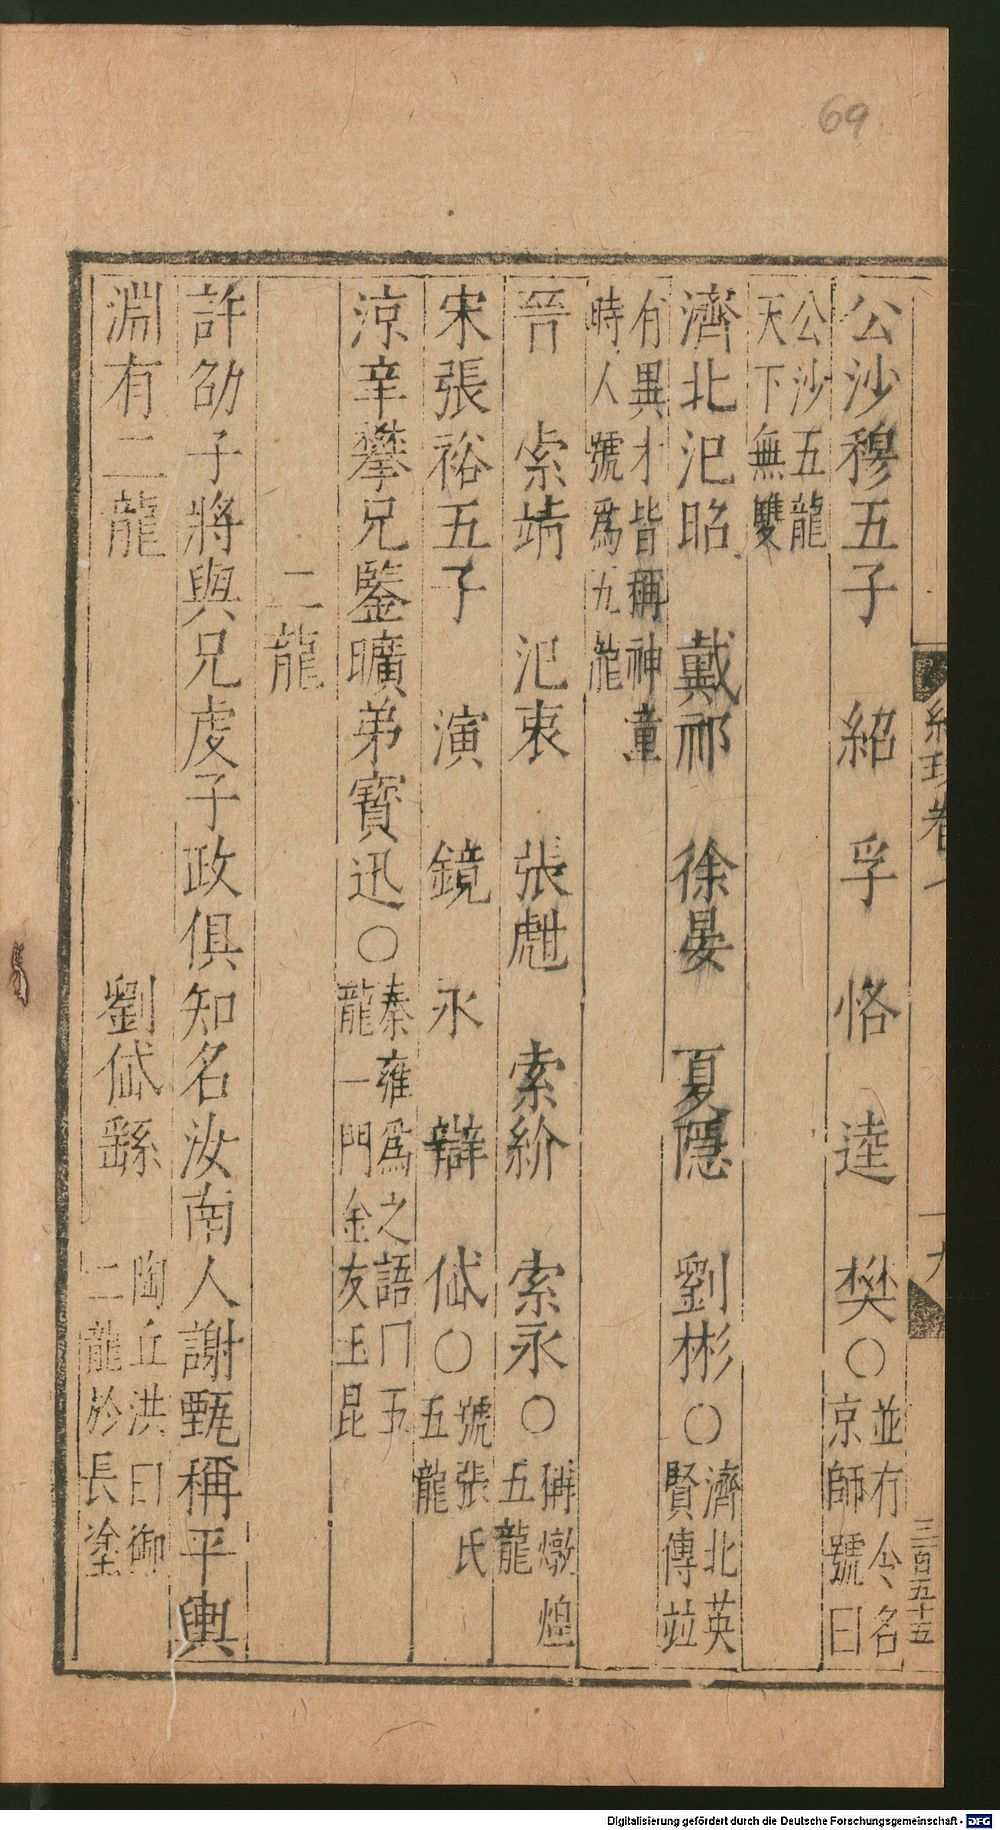 69
公沙穆五子 紹 孚 恪 逵 樊○並有令名京師號曰
公沙五龍天下無雙
濟北氾昭 戴祁 徐晏 夏隱 劉彬○濟北英賢傳竝
有異才皆稱神童時人號爲九龍
晉 索靖 氾衷 張甝 索紾 索永○稱燉煌五龍
宋張裕五子 演 鏡 永 辯 岱○號張氏五龍
涼辛攀兄鑒曠弟寶迅○秦雍爲之語曰五龍一門金友玉昆
二龍
許劭子將與兄虔子政俱知名汝南人謝甄稱平輿
淵有二龍 劉岱繇 陶丘洪曰御二龍於長塗
卷
十九
三百五十五
Digitalisierung gefördert durch die Deutsche Forschungsgemeinschaft - DFG